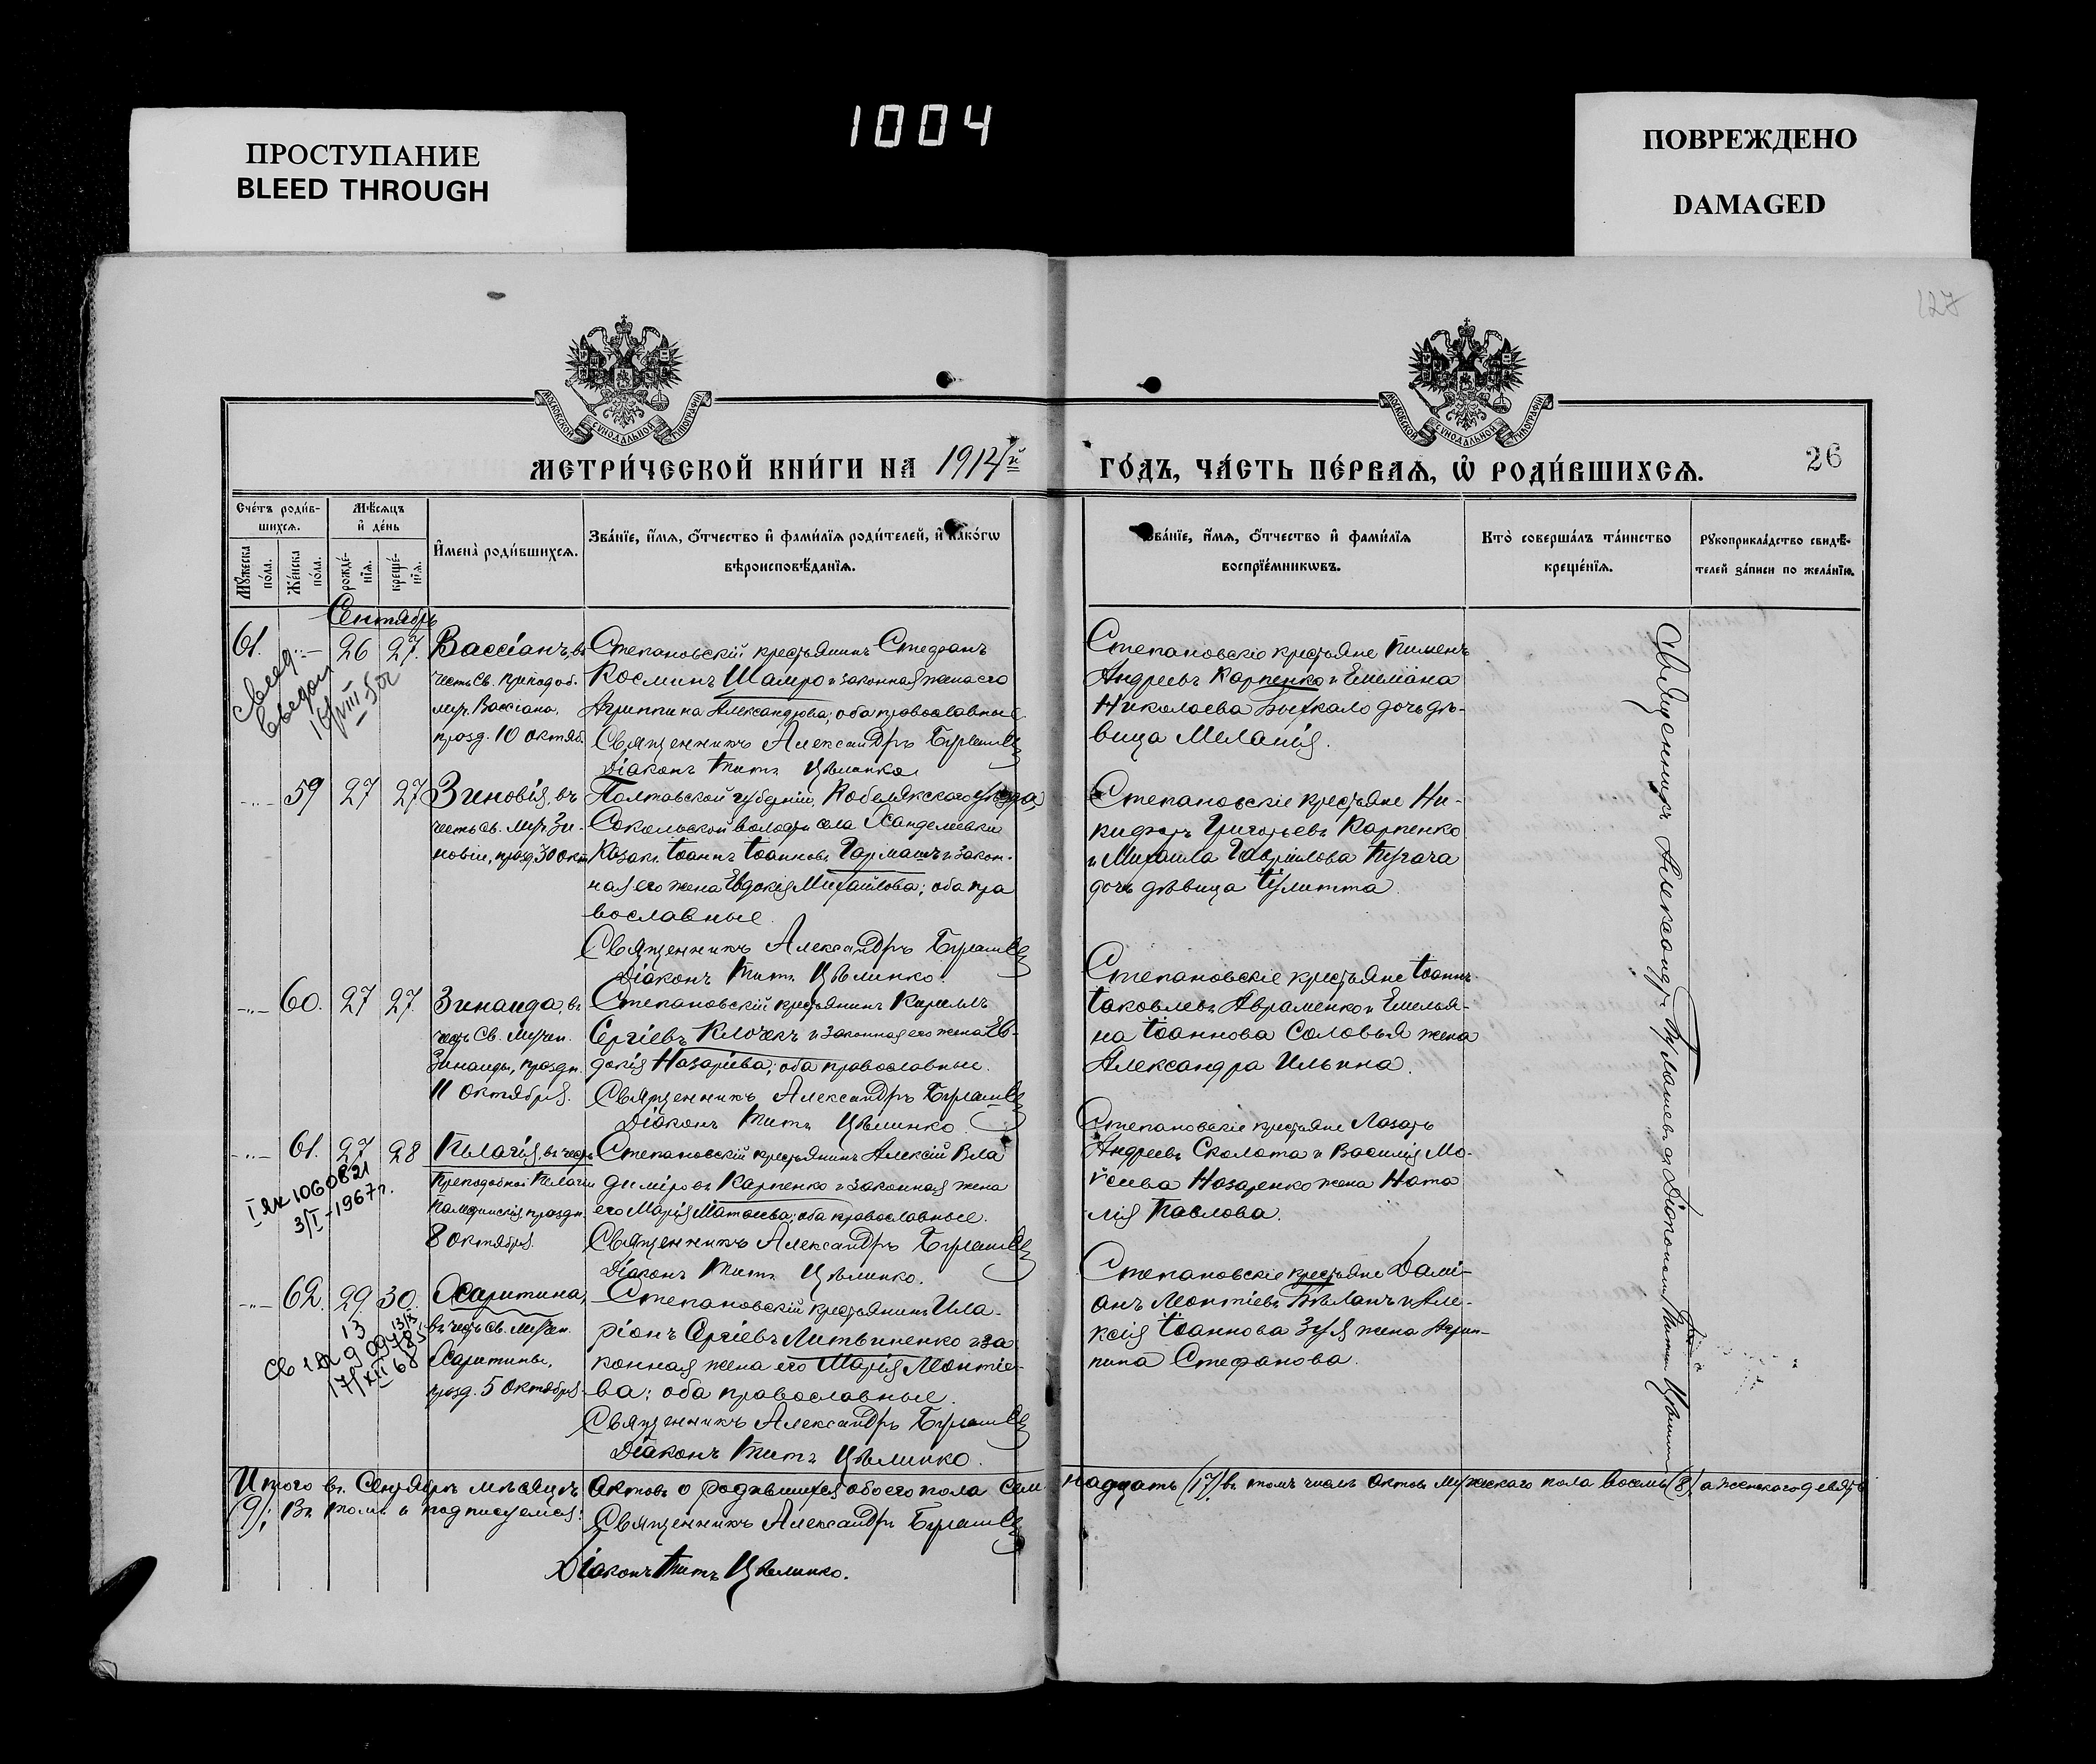 1004
ПРОСТУПАНИЕ
BLEED THROUGH
ПОВРЕЖДЕНО
DAMAGED
127
МОСКОВСКОЙ СѴНОДАЛЬНОЙ ТИПОГРАФІИ
МОСКОВСКОЙ СѴНОДАЛЬНОЙ ТИПОГРАФІИ
МЕТРИ́ЧЕСКОЙ КНИ́ГИ НА 1914й
ГО́ДЪ, ЧА́СТЬ ПЕ́РВАѦ, Ѿ РОДИ́ВШИХСѦ.
26
Сче́тъ роди́в-
шихсѧ.
Мꙋ́жеска
по́ла.
Же́нска
по́ла.
Мѣ́сѧцъ
и҆ де́нь
рожде́-
нїѧ.
креще́-
нїѧ.
И҆мена̀ роди́вшихсѧ.
Зва́нїе, и҆́мѧ, ѻ҆́тчество и҆ фами́лїѧ роди́телей, и҆ како́гѡ
вѣроисповѣ́данїѧ.
Зва́нїе, и҆́мѧ, ѻ҆́тчество и҆ фами́лїѧ
воспрїе́мникѡвъ.
Кто̀ соверша́лъ та́инство
креще́нїѧ.
Рꙋкоприкла́дство свидѣ́-
телей за́писи по жела́нїю.
Сентябрь
61. -"- 26 27.
Вассіанъ, въ
честь Св. преподоб.
муч. Вассіана,
празд. 10 октяб.
Степановскій крестьянинъ Стефанъ
Косминъ Шапро и законная жена его
Агриппина Александрова; оба православные
Священникъ Александръ
Діаконъ Титъ Цѣлинко
Степановскіе крестьяне Пименъ
Андреевъ Карпенко и Емеліана
Николаева дочь дѣ-
вица Меланія.
-"- 59 27 27
Зиновія, въ
честь св. муч. Зи-
новіи, празд. 30 окт.
Полтавской губерніи, Кобелякскаго уѣзда,
Сокольской волости села
Козакъ Іоаннъ Іоанновъ Гармашъ и закон-
ная его жена Евдокія Михайлова; оба пра
вославные.
Священникъ Александръ
Діаконъ Титъ Цѣлинко.
Степановскіе крестьяне Ни-
кифоръ Григорьевъ Карпенко
и Михаила Гавріилова Пугача
дочь дѣвица Іулитта.
-"- 60. 27 27.
Зинаида, въ
честь Св. Мучен.
Зинаиды, праздн.
11 Октября.
Степановскій крестьянинъ Кириллъ
Сергіевъ Клочекъ и законная его жена Ев-
докія Назаріева; оба православные.
Священникъ Александръ
Діаконъ Титъ Цѣлинко.
Степановскіе крестьяне Іоаннъ
Іаковлевъ Авраменко и Емелья-
на Іоаннова Соловья жена
Александра Ильина.
-"- 61. 27 28
Пелагія, въ честь
Преподобной Пелагіи
праздн.
8 Октября.
Степановскій крестьянинъ Алексій Вла
диміровъ Карпенко и законная жена
его Марія Матѳеева; оба православные.
Священникъ Александръ
Діаконъ Титъ Цѣлинко.
I 1060821
3/I-1967г.
Степановскіе крестьяне Лазарь
Андреевъ Сколота и Василія Мо-
исеева Назаренко жена Ната
лія Павлова.
-"- 62. 29. 30.
Харитина,
въ честь св. Мучен.
Харитины,
празд. 5 Октября.
Степановскій крестьянинъ Ила-
ріонъ Сергіевъ Литвиненко и за
конная жена его Марія Леонтіе-
ва; оба православные.
Священникъ Александръ
Діаконъ Титъ Цѣлинко.
17/XII 68
Степановскіе крестьяне Дамі-
анъ Леонтіевъ Бѣланъ и Але-
ксія Іоаннова Зуя жена Агрип-
пина Стефанова.
Священникъ Александръ съ Діакономъ Титомъ
Итого въ Сентябрѣ мѣсяцѣ Актовъ о родившихся обоего пола сем-надцать (17) въ томъ числѣ Актовъ мужескаго пола восемь (8), а женскаго девять
(9); Въ томъ и подписуемся:
Священникъ Александръ
Діаконъ Титъ Цѣлинко.